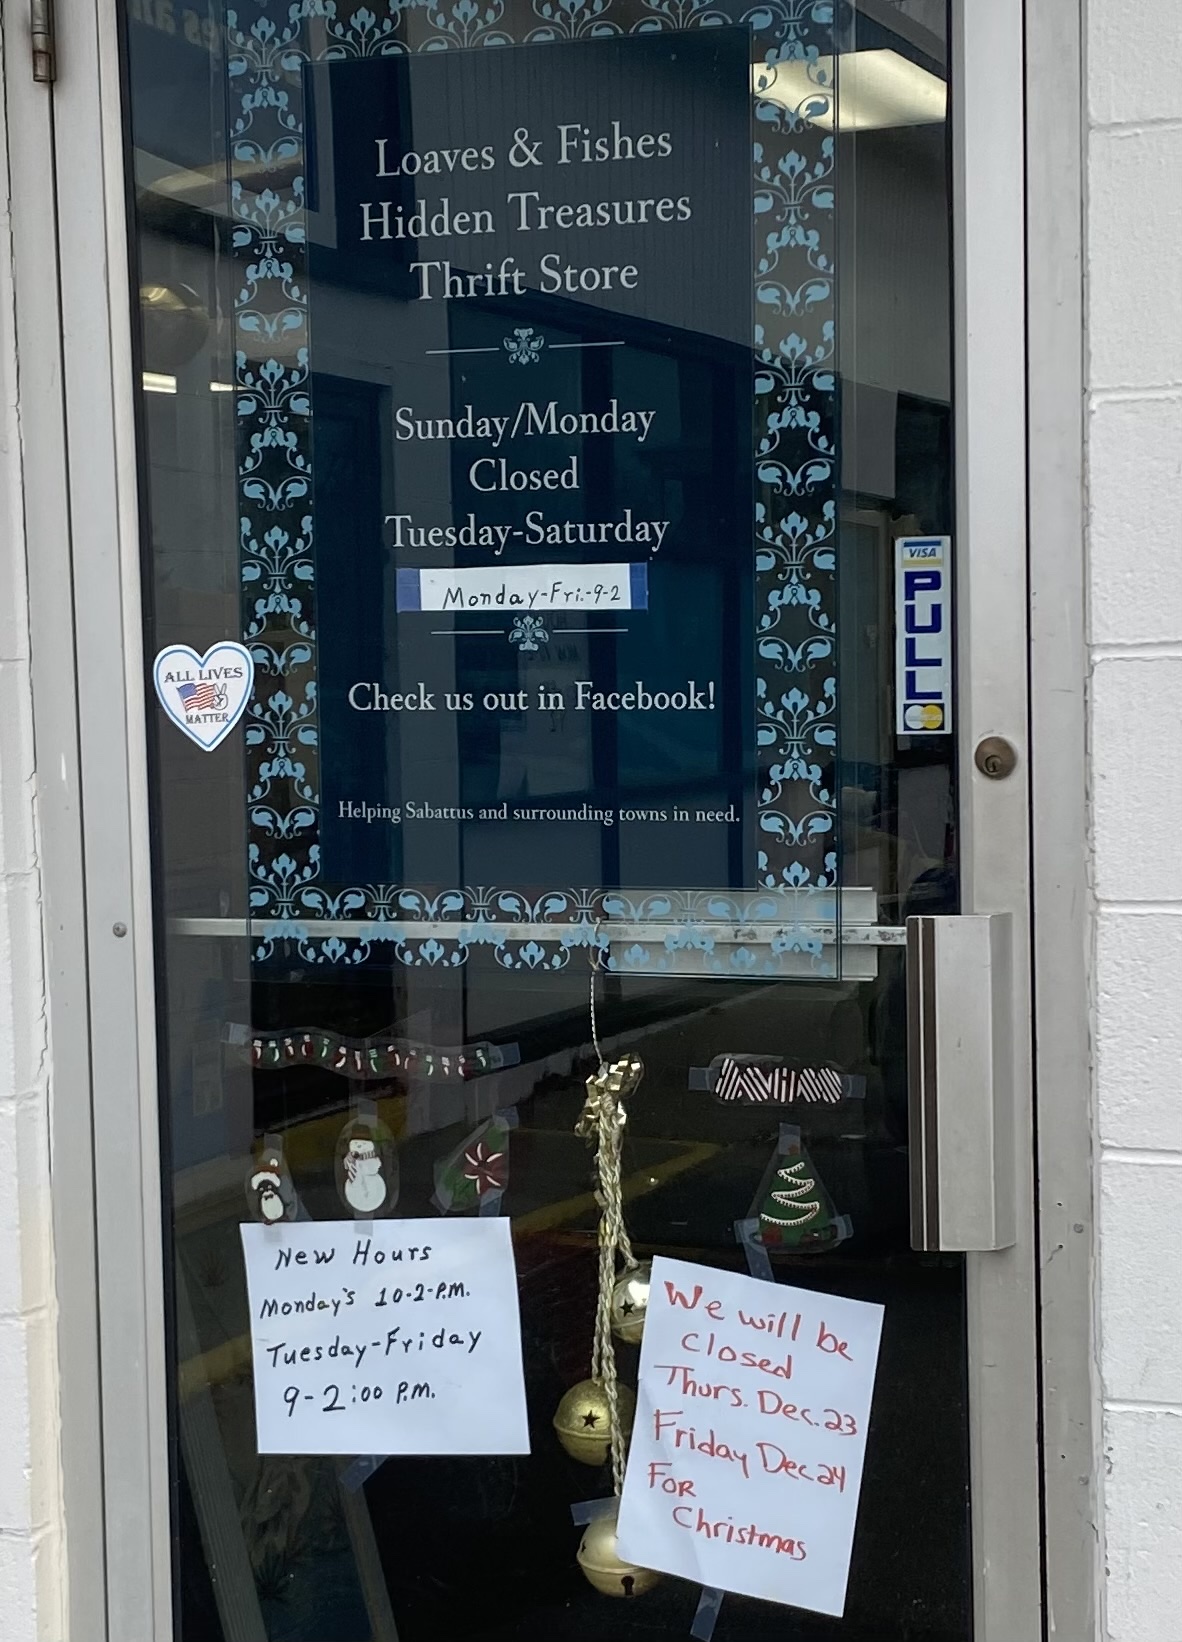 Loaves & Fishes
Hidden Treasures
Thrift Store
Sunday/Monday
Closed
Tuesday-Saturday
Monday-Fri.-9-2
Check us out in Facebook!
Helping Sabattus and surrounding towns in need.
ALL LIVES
MATTER
VISA
PULL
New Hours
Monday's 10-2-P.M.
Tuesday-Friday
9-2:00 P.M.
We will be
Closed
Thurs. Dec. 23
Friday Dec 24
For
Christmas